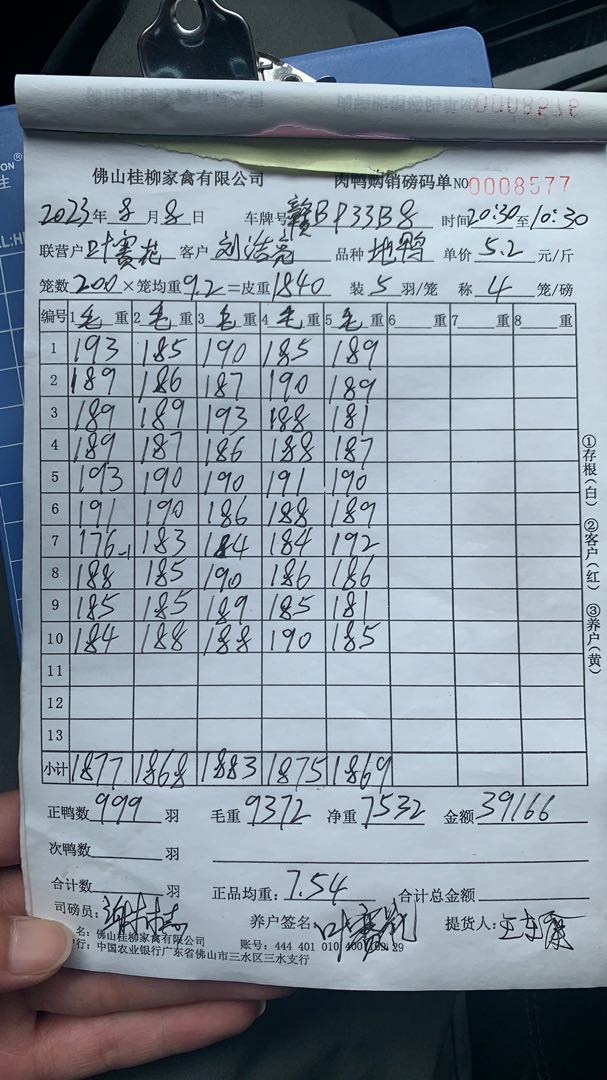 0008576
佛山桂柳家禽有限公司 肉鸭购销磅码单 NO 0008577
2023年 8 月 8 日 车牌号 赣BP33B8 时间20:30至10:30
联营户 叶赛花 客户 刘浩亮 品种 地鸭 单价 5.2 元/斤
笼数 200 ×笼均重 9.2 =皮重 1840 装 5 羽/笼 称 4 笼/磅
编号 1 毛 重 2 毛 重 3 毛 重 4 毛 重 5 毛 重 6 重 7 重 8 重
1 193 185 190 185 189
2 189 186 187 190 189
3 189 189 193 188 181
4 189 187 186 188 187
5 193 190 190 191 190
6 191 190 186 188 189
7 176-1 183 184 184 192
8 188 185 190 186 186
9 185 185 189 185 181
10 184 188 188 190 185
11
12
13
小计 1877 1868 1883 1875 1869
①存根(白) ②客户(红) ③养户(黄)
正鸭数 999 羽 毛重 9372 净重 7532 金额 39166
次鸭数 羽
合计数 羽 正品均重: 7.54 合计总金额
司磅员: 养户签名: 叶赛花 提货人:
名: 佛山桂柳家禽有限公司 账号: 444 401 010 400 29
行: 中国农业银行广东省佛山市三水区三水支行